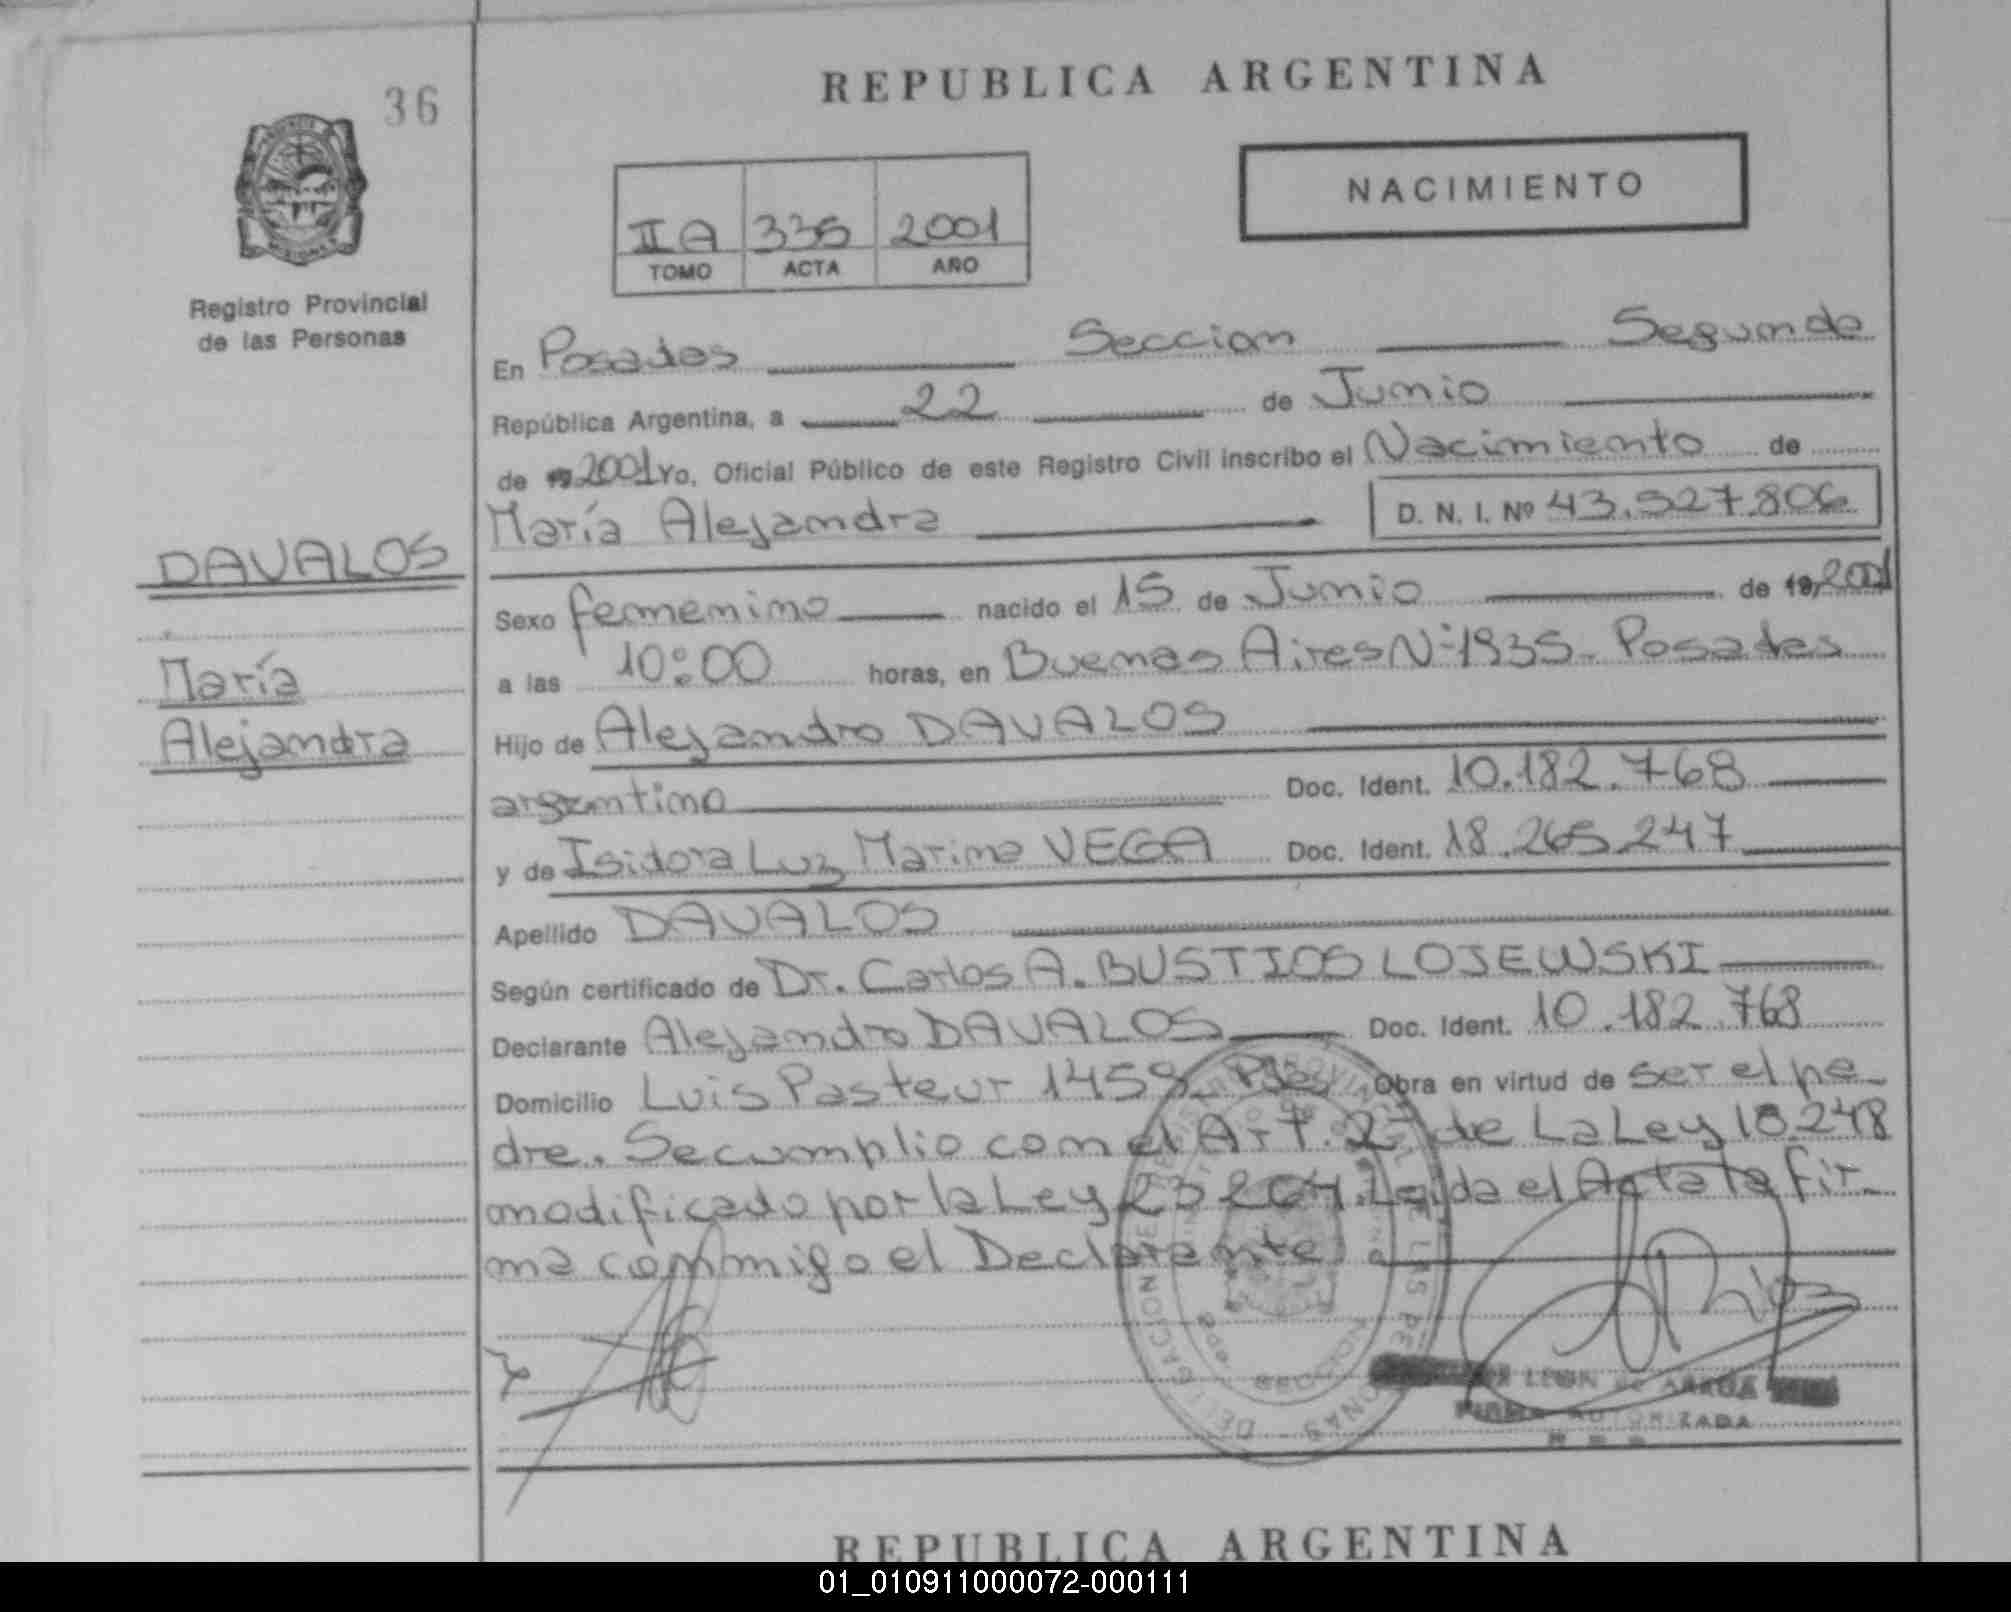 36
REPUBLICA ARGENTINA
NACIMIENTO
IIA 335 2001
TOMO ACTA AÑO
Registro Provincial
de las Personas
En Posadas Seccion Segunda
República Argentina, a 22 de Junio
de 19 2001 Yo, Oficial Público de este Registro Civil inscribo el Nacimiento de
María Alejandra D. N. I. Nº 43.527.806
DAVALOS
María
Alejandra
Sexo femenino nacido el 15 de Junio de 19, 2001
a las 10:00 horas, en Buenas Aires Nº 1935- Posadas
Hijo de Alejandro DAVALOS
argentino Doc. Ident. 10.182.768
y de Isidora Luz Marina VEGA Doc. Ident. 18.265.247
Apellido DAVALOS
Según certificado de Dr. Carlos A. BUSTIOS LOJEWSKI
Declarante Alejandro DAVALOS Doc. Ident. 10.182.768
Domicilio Luis Pasteur 1459- Pdas Obra en virtud de ser el pa-
dre. Se cumplio con el Art. 2º de La Ley 18.248
modificado por la Ley 23264. Leída el Acta la fir-
ma conmigo el Declarante
LEON de ARRUA
FIRMA AUTORIZADA
REPUBLICA ARGENTINA
01_010911000072-000111